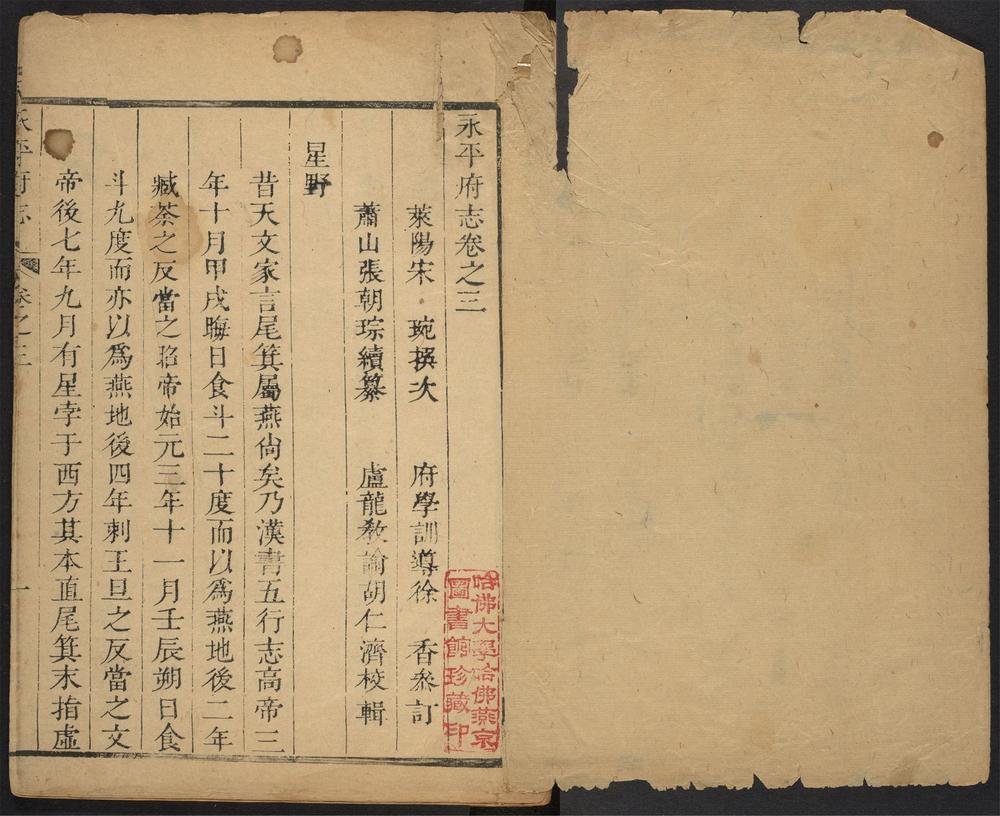 永平府志卷之三
萊陽宋琬撰次 府學訓導徐香叅訂
蕭山張朝琮續纂 盧龍教諭胡仁濟校輯
星野
昔天文家言尾箕屬燕尚矣乃漢書五行志高帝三
年十月甲戌晦日食斗二十度而以爲燕地後二年
臧荼之反當之昭帝始元三年十一月壬辰朔日食
斗九度而亦以爲燕地後四年刺王旦之反當之文
帝後七年九月有星孛于西方其本直尾箕末指虛
永平府志 卷之三 一
哈佛大學哈佛燕京
圖書館珍藏印